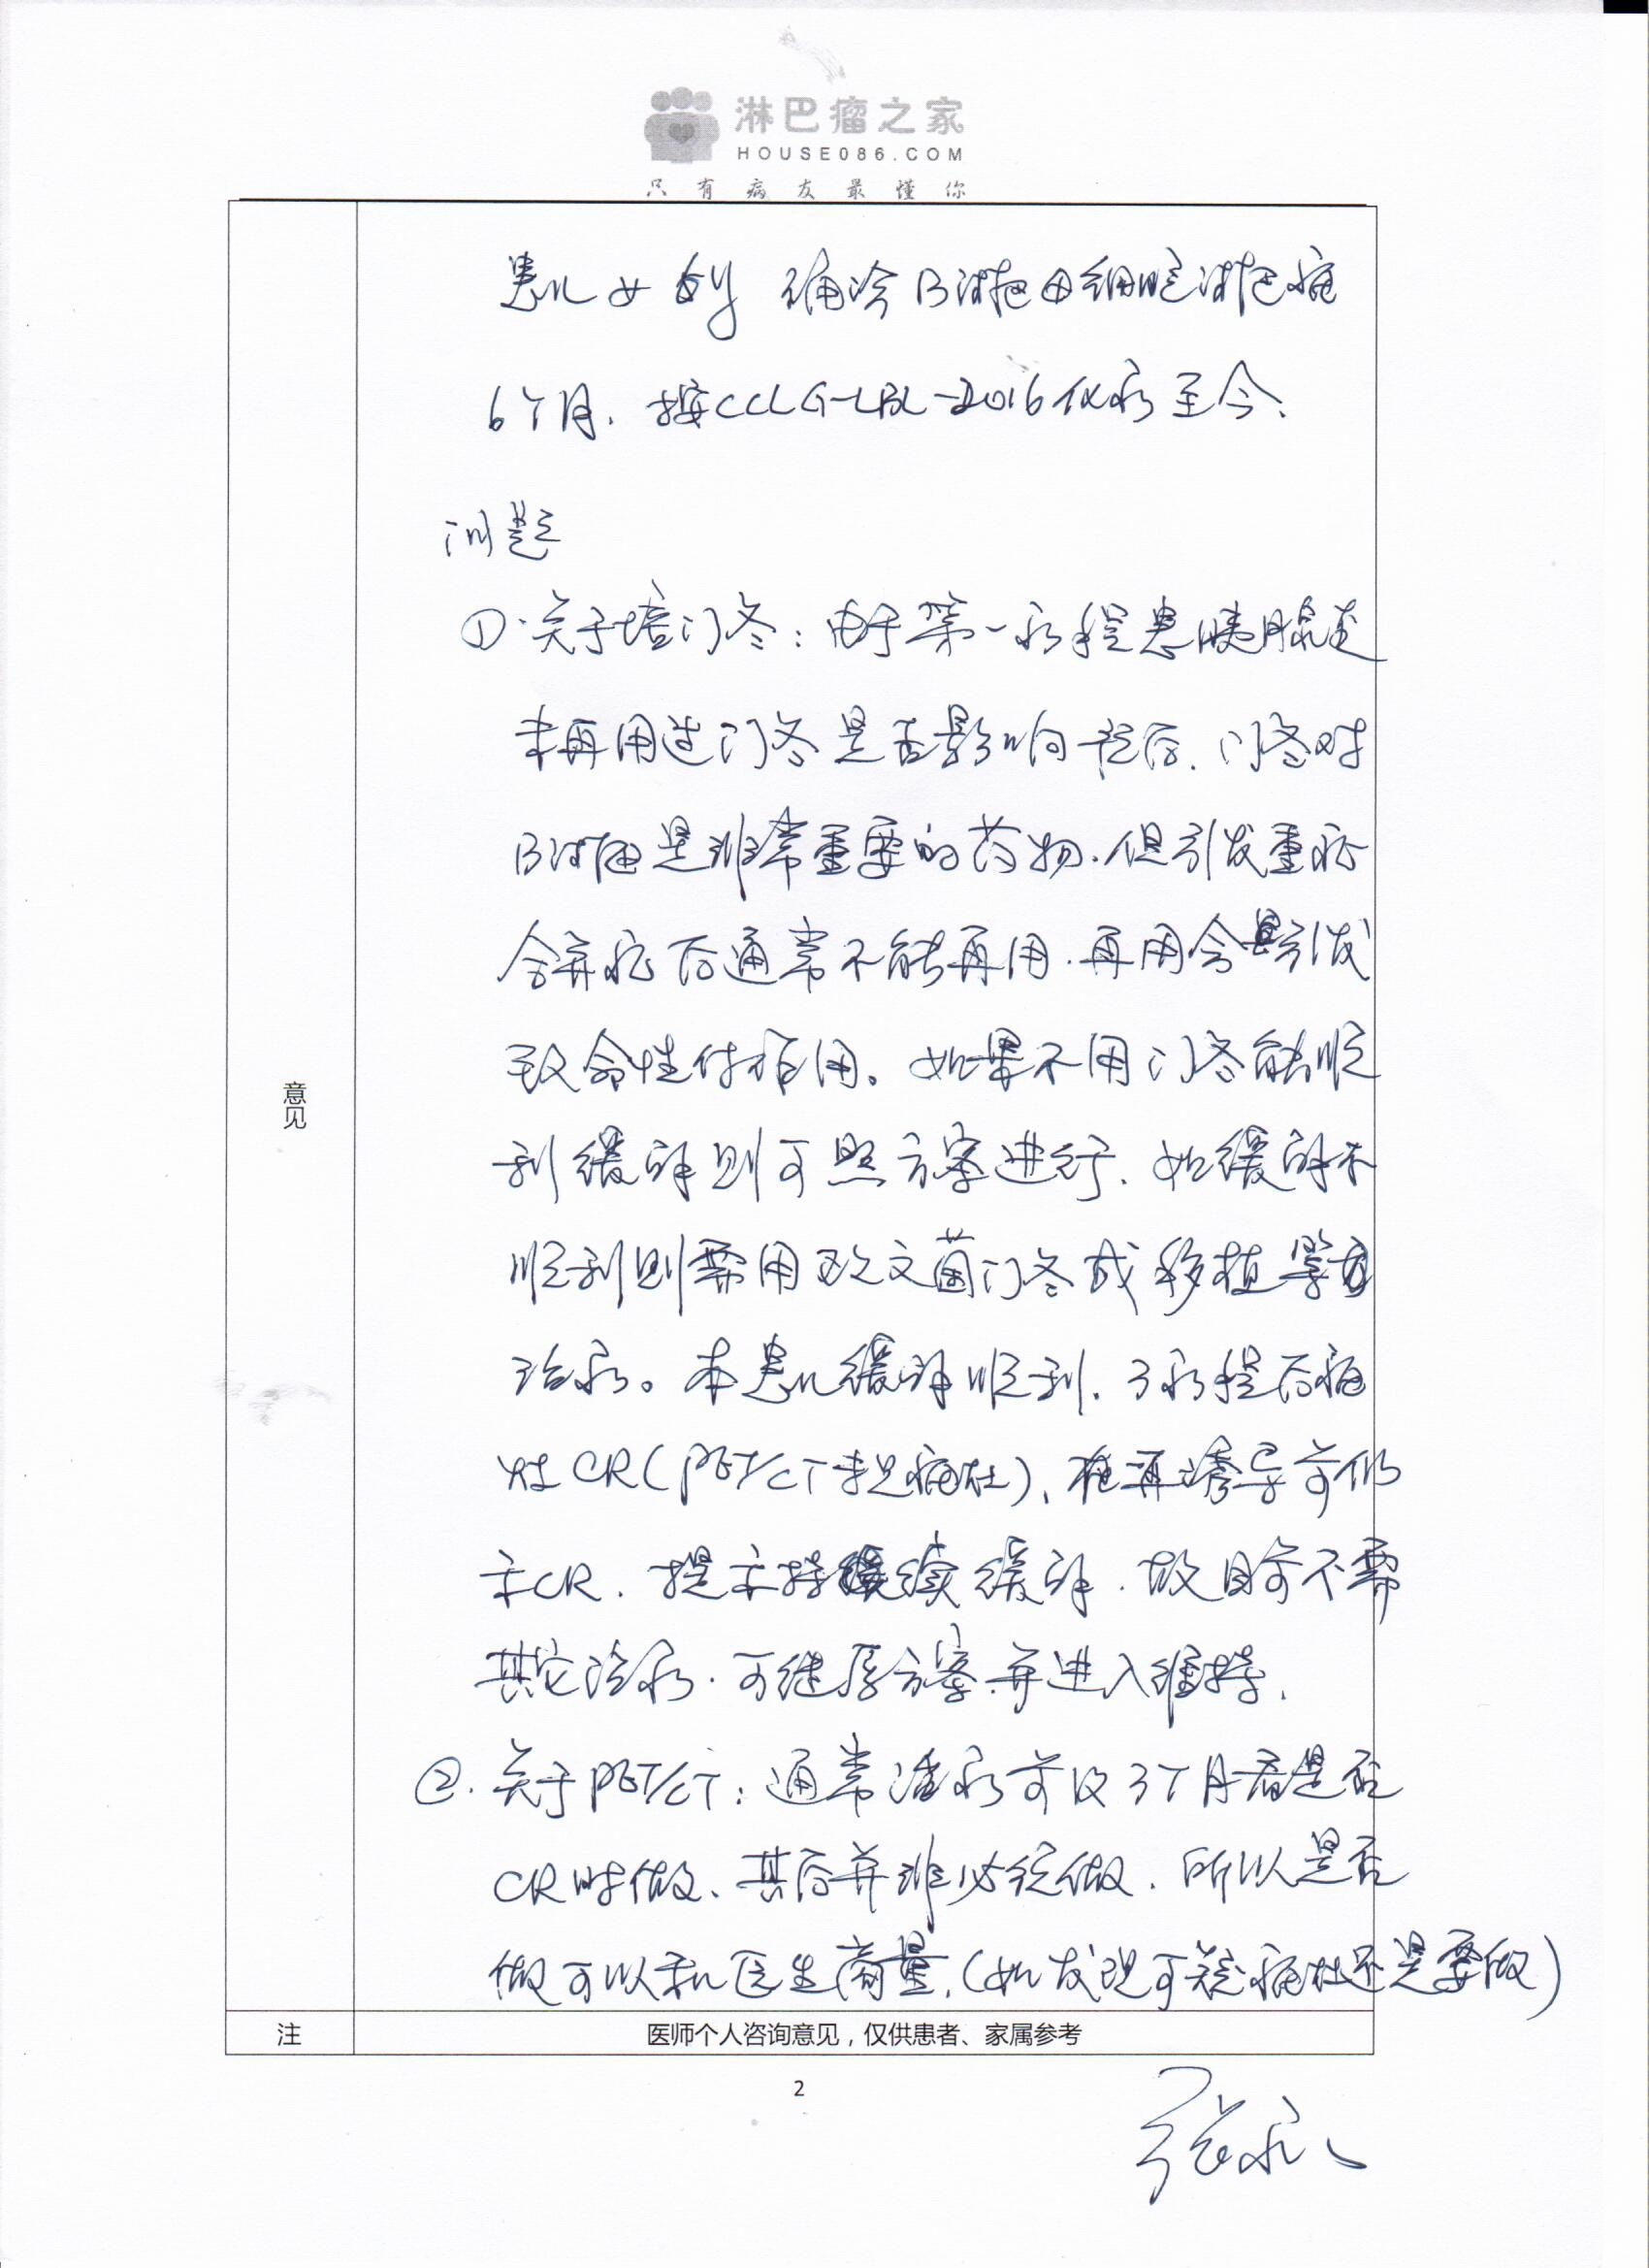 淋巴瘤之家
HOUSE086.COM
只有病友最懂你
患儿 女 确诊B淋巴母细胞淋巴瘤
6个月. 按CCLG-LBL-2016化疗至今.
问题
①. 关于培门冬: 由于第一疗程患胰腺炎
未再用过门冬是否影响预后. 门冬对
B淋巴是非常重要的药物. 但引发重症
合并症后通常不能再用. 再用会引发
致命性付作用。如果不用门冬能顺
利缓解则可照方案进行. 如缓解不
顺利则需用欧文菌门冬或移植等
治疗。本患儿缓解顺利. 3疗程后病
灶CR(PET/CT未见病灶)、在再诱导前仍
示CR. 提示持续缓解. 故目前不需
其它治疗. 可继原方案并进入维持.
②. 关于PET/CT: 通常活疗前及3个月看是否
CR时做、其后并非必须做. 所以是否
做可以和医生商量.(如发现可疑病灶还是要做)
意见
注 医师个人咨询意见，仅供患者、家属参考
2
张永